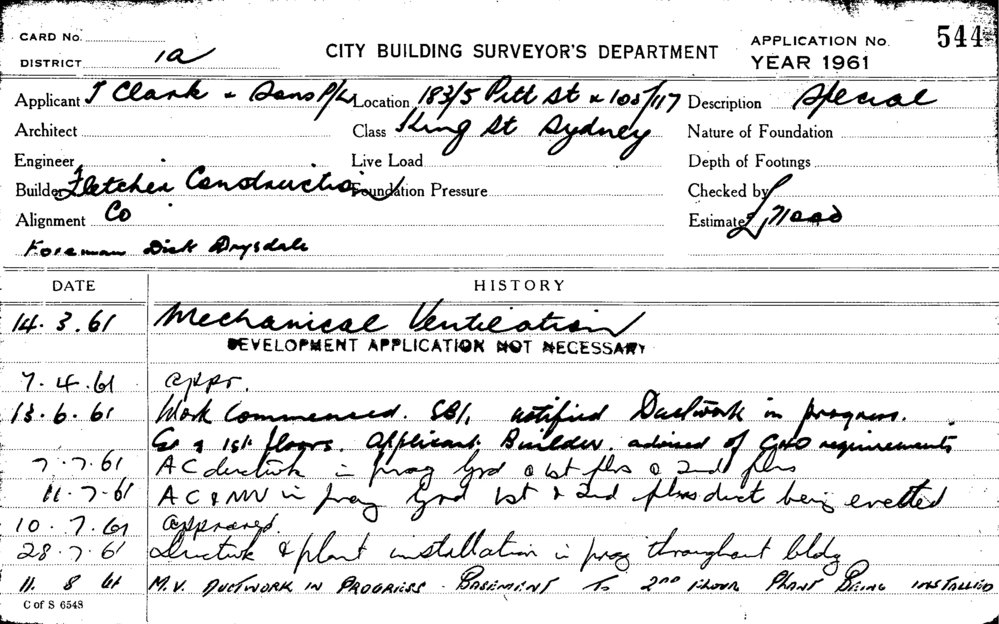 CARD No.
DISTRICT 1a
CITY BUILDING SURVEYOR'S DEPARTMENT
APPLICATION No. 544
YEAR 1961
Applicant J Clark & Sons P/L Location 183/5 Pitt St & 105/117 Description Special
Architect Class King St Sydney Nature of Foundation
Engineer Live Load Depth of Footings
Builder Fletcher Construction Foundation Pressure Checked by
Alignment Co Estimate £
Foreman Dick Drysdale
DATE HISTORY
14.3.61 Mechanical Ventilation
DEVELOPMENT APPLICATION NOT NECESSARY
7.4.61 appr.
13.6.61 Work Commenced. SBI, notified Ductwork in progress.
Gr & 1st floors. Applicant. Builder. advised of requirements
7.7.61 A C ductwk in prog Grd & 1st flrs & 2nd flrs
11.7.61 A C & MV in prog Grd 1st & 2nd flrs duct being erected
10.7.61 approved.
28.7.61 Ductwk & plant installation in prog throughout bldg
11.8.61 M.V. DUCTWORK IN PROGRESS - BASEMENT TO 2ND FLOOR PLANT BEING INSTALLED
C of S 6548